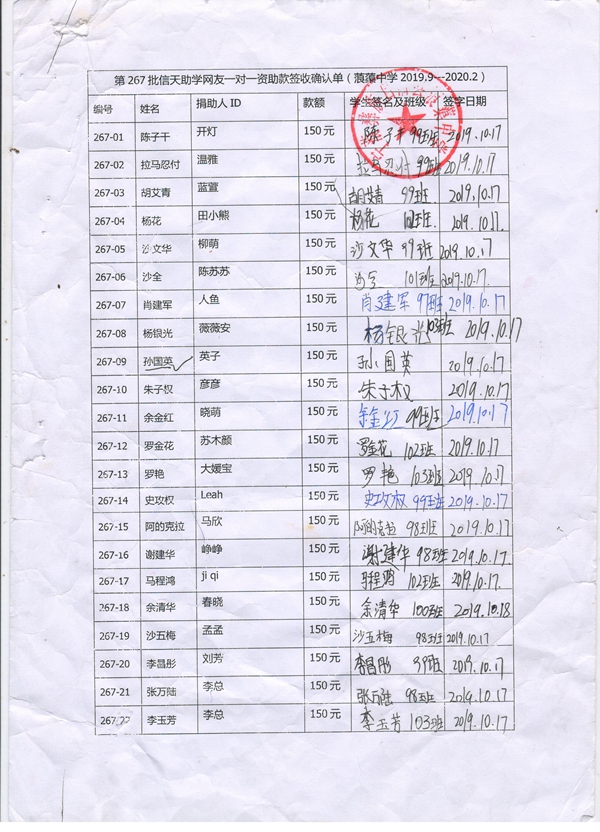 第 267 批信天助学网友一对一资助款签收确认单（蒗蕖中学 2019.9---2020.2）
编号 姓名 捐助人 ID 款额 学生签名及班级 签字日期
267-01 陈子干 开灯 150 元 陈子干 99班 2019.10.17
267-02 拉马忍付 温雅 150 元 拉马忍付 99班 2019.10.17
267-03 胡艾青 蓝萱 150 元 胡艾青 99班 2019.10.17
267-04 杨花 田小熊 150 元 杨花 102班 2019.10.17
267-05 沙文华 柳萌 150 元 沙文华 99班 2019.10.17
267-06 沙全 陈苏苏 150 元 沙全 101班 2019.10.17
267-07 肖建军 人鱼 150 元 肖建军 97班 2019.10.17
267-08 杨银光 薇薇安 150 元 杨银光 103班 2019.10.17
267-09 孙国英 英子 150 元 孙国英 2019.10.17
267-10 朱子权 彦彦 150 元 朱子权 2019.10.17
267-11 余金红 晓萌 150 元 余金红 99班 2019.10.17
267-12 罗金花 苏木颜 150 元 罗金花 102班 2019.10.17
267-13 罗艳 大媛宝 150 元 罗艳 103班 2019.10.17
267-14 史攻权 Leah 150 元 史攻权 99班 2019.10.17
267-15 阿的克拉 马欣 150 元 阿的克拉 98班 2019.10.17
267-16 谢建华 峥峥 150 元 谢建华 98班 2019.10.17.
267-17 马程鸿 ji qi 150 元 马程鸿 102班 2019.10.17.
267-18 余清华 春晓 150 元 余清华 100班 2019.10.18
267-19 沙五梅 孟孟 150 元 沙五梅 98班 2019.10.17
267-20 李昌彤 刘芳 150 元 李昌彤 99班 2019.10.17
267-21 张万陆 李总 150 元 张万陆 98班 2019.10.17
267-22 李玉芳 李总 150 元 李玉芳 103班 2019.10.17